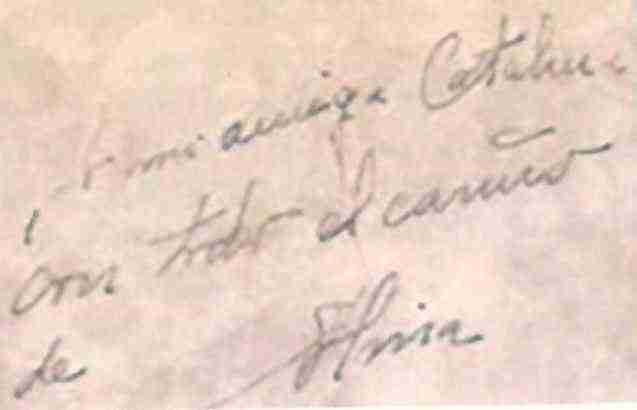 mi amiga Catalina
con todo el cariño
de